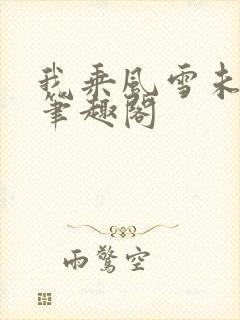 我乘风雪未
笔趣阁
雨惊空